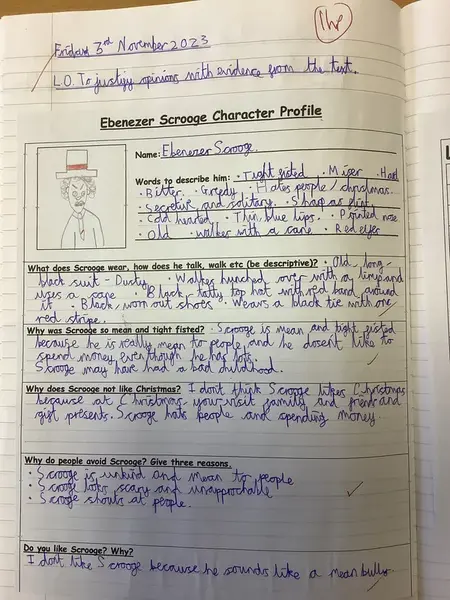 1hp
Friday 3rd November 2023
L.O. To justify opinions with evidence from the text.
Ebenezer Scrooge Character Profile
Name: Ebenezer Scrooge.
Words to describe him: · Tight fisted · Miser · Hard
· Bitter · Greedy · Hates people / christmas
· Secretive and solitary · Sharp as flint
· Cold hearted · Thin blue lips · Pointed nose
· Old · walker with a cane · Red eyes
What does Scrooge wear, how does he talk, walk etc (be descriptive)? · Old, long
black suit - Dusty · Walks hunched over with a limp and
uses a cane · Black tatty top hat with red band around
it · Black worn out shoes · Wears a black tie with one
red stripe.
Why was Scrooge so mean and tight fisted? · Scrooge is mean and tight fisted
because he is really mean to people and he dosent like to
spend money even though he has lots.
Scrooge may have had a bad childhood.
Why does Scrooge not like Christmas? I dont think Scrooge likes Christmas
because at Christmas you visit family and friend and
gift presents. Scrooge hats people and spending money
Why do people avoid Scrooge? Give three reasons.
· Scrooge is unkind and mean to people
· Scrooge looks scary and unapprochable
· Scrooge shouts at people.
Do you like Scrooge? Why?
I dont like Scrooge because he sounds like a mean bully.